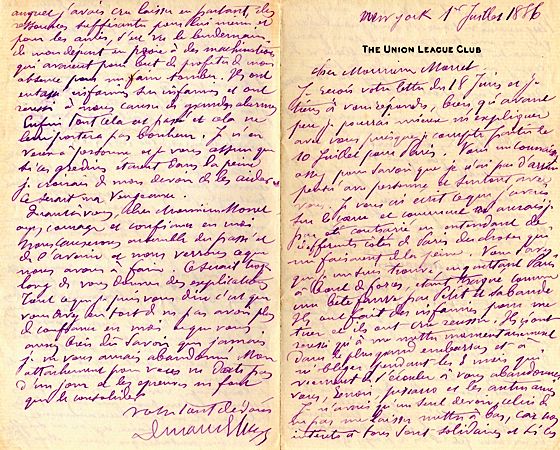 New York 1er Juillet 1886
THE UNION LEAGUE CLUB
Cher Monsieur Monet
Je reçois votre lettre du 18 Juin et je
tiens à vous répondre, bien qu'avant
peu je pourrai mieux m'expliquer
avec vous puisque je compte partir le
10 Juillet pour Paris. Vous me connaissez
assez pour savoir que je n'ai pas d'arrière
pensée avec personne et surtout avec
vous. Je vous ai écrit ce que j'avais
sur le cœur et comment ne aurais je
pas été contrarié en entendant de
différents côtés de Paris des choses qui
me faisaient de la peine. Vous savez
que je me suis trouvé en quittant Paris
à bout de forces, étant traqué comme
une bête fauve par Petit et sa bande
Ils ont fait des infamies pour me
tuer et ils ont cru réussir. Ils ont
réussi qu'à me mettre momentanément
dans le plus grand embarras et à
m'obliger pendant les 3 mois qui
viennent de s'écouler à vous abandonner
vous, Renoir, Pissarro et les autres amis
Je n'avais qu'un seul devoir, celui de
ne pas me laisser mettre à bas, car nos
intérêts à tous sont solidaires et si les
auquel j'avais cru laisser en partant, des
ressources suffisantes pour lui même et
pour les autres, s'est vu le lendemain
de mon départ en proie à des machinations
qui avaient pour but de profiter de mon
absence pour me faire tomber. Ils ont
entassé infamies sur infamies et ont
réussi à nous causer de grandes alarmes
Enfin tout cela est passé et cela ne
leur portera pas bonheur. Je n'en
veux à personne et je vous assure que
si ces gredins étaient dans la peine
je croirais de mon devoir de les aider
ce serait ma vengeance.
Quant à vous, cher Monsieur Monet
ayez courage et confiance en moi.
Nous causerons ensemble du passé et
de l'avenir et nous verrons ce que
nous avons à faire. Ce serait trop
long de vous donner des explications
Tout ce que je puis vous dire c'est que
vous avez eu tort de ne pas avoir plus
de confiance en moi et que vous
auriez dû savoir que jamais
je ne vous aurais abandonné. Mon
attachement pour vous ne date pas
d'un jour et les épreuves ne font
que le consolider.
Votre tout dévoué
Durand Ruel